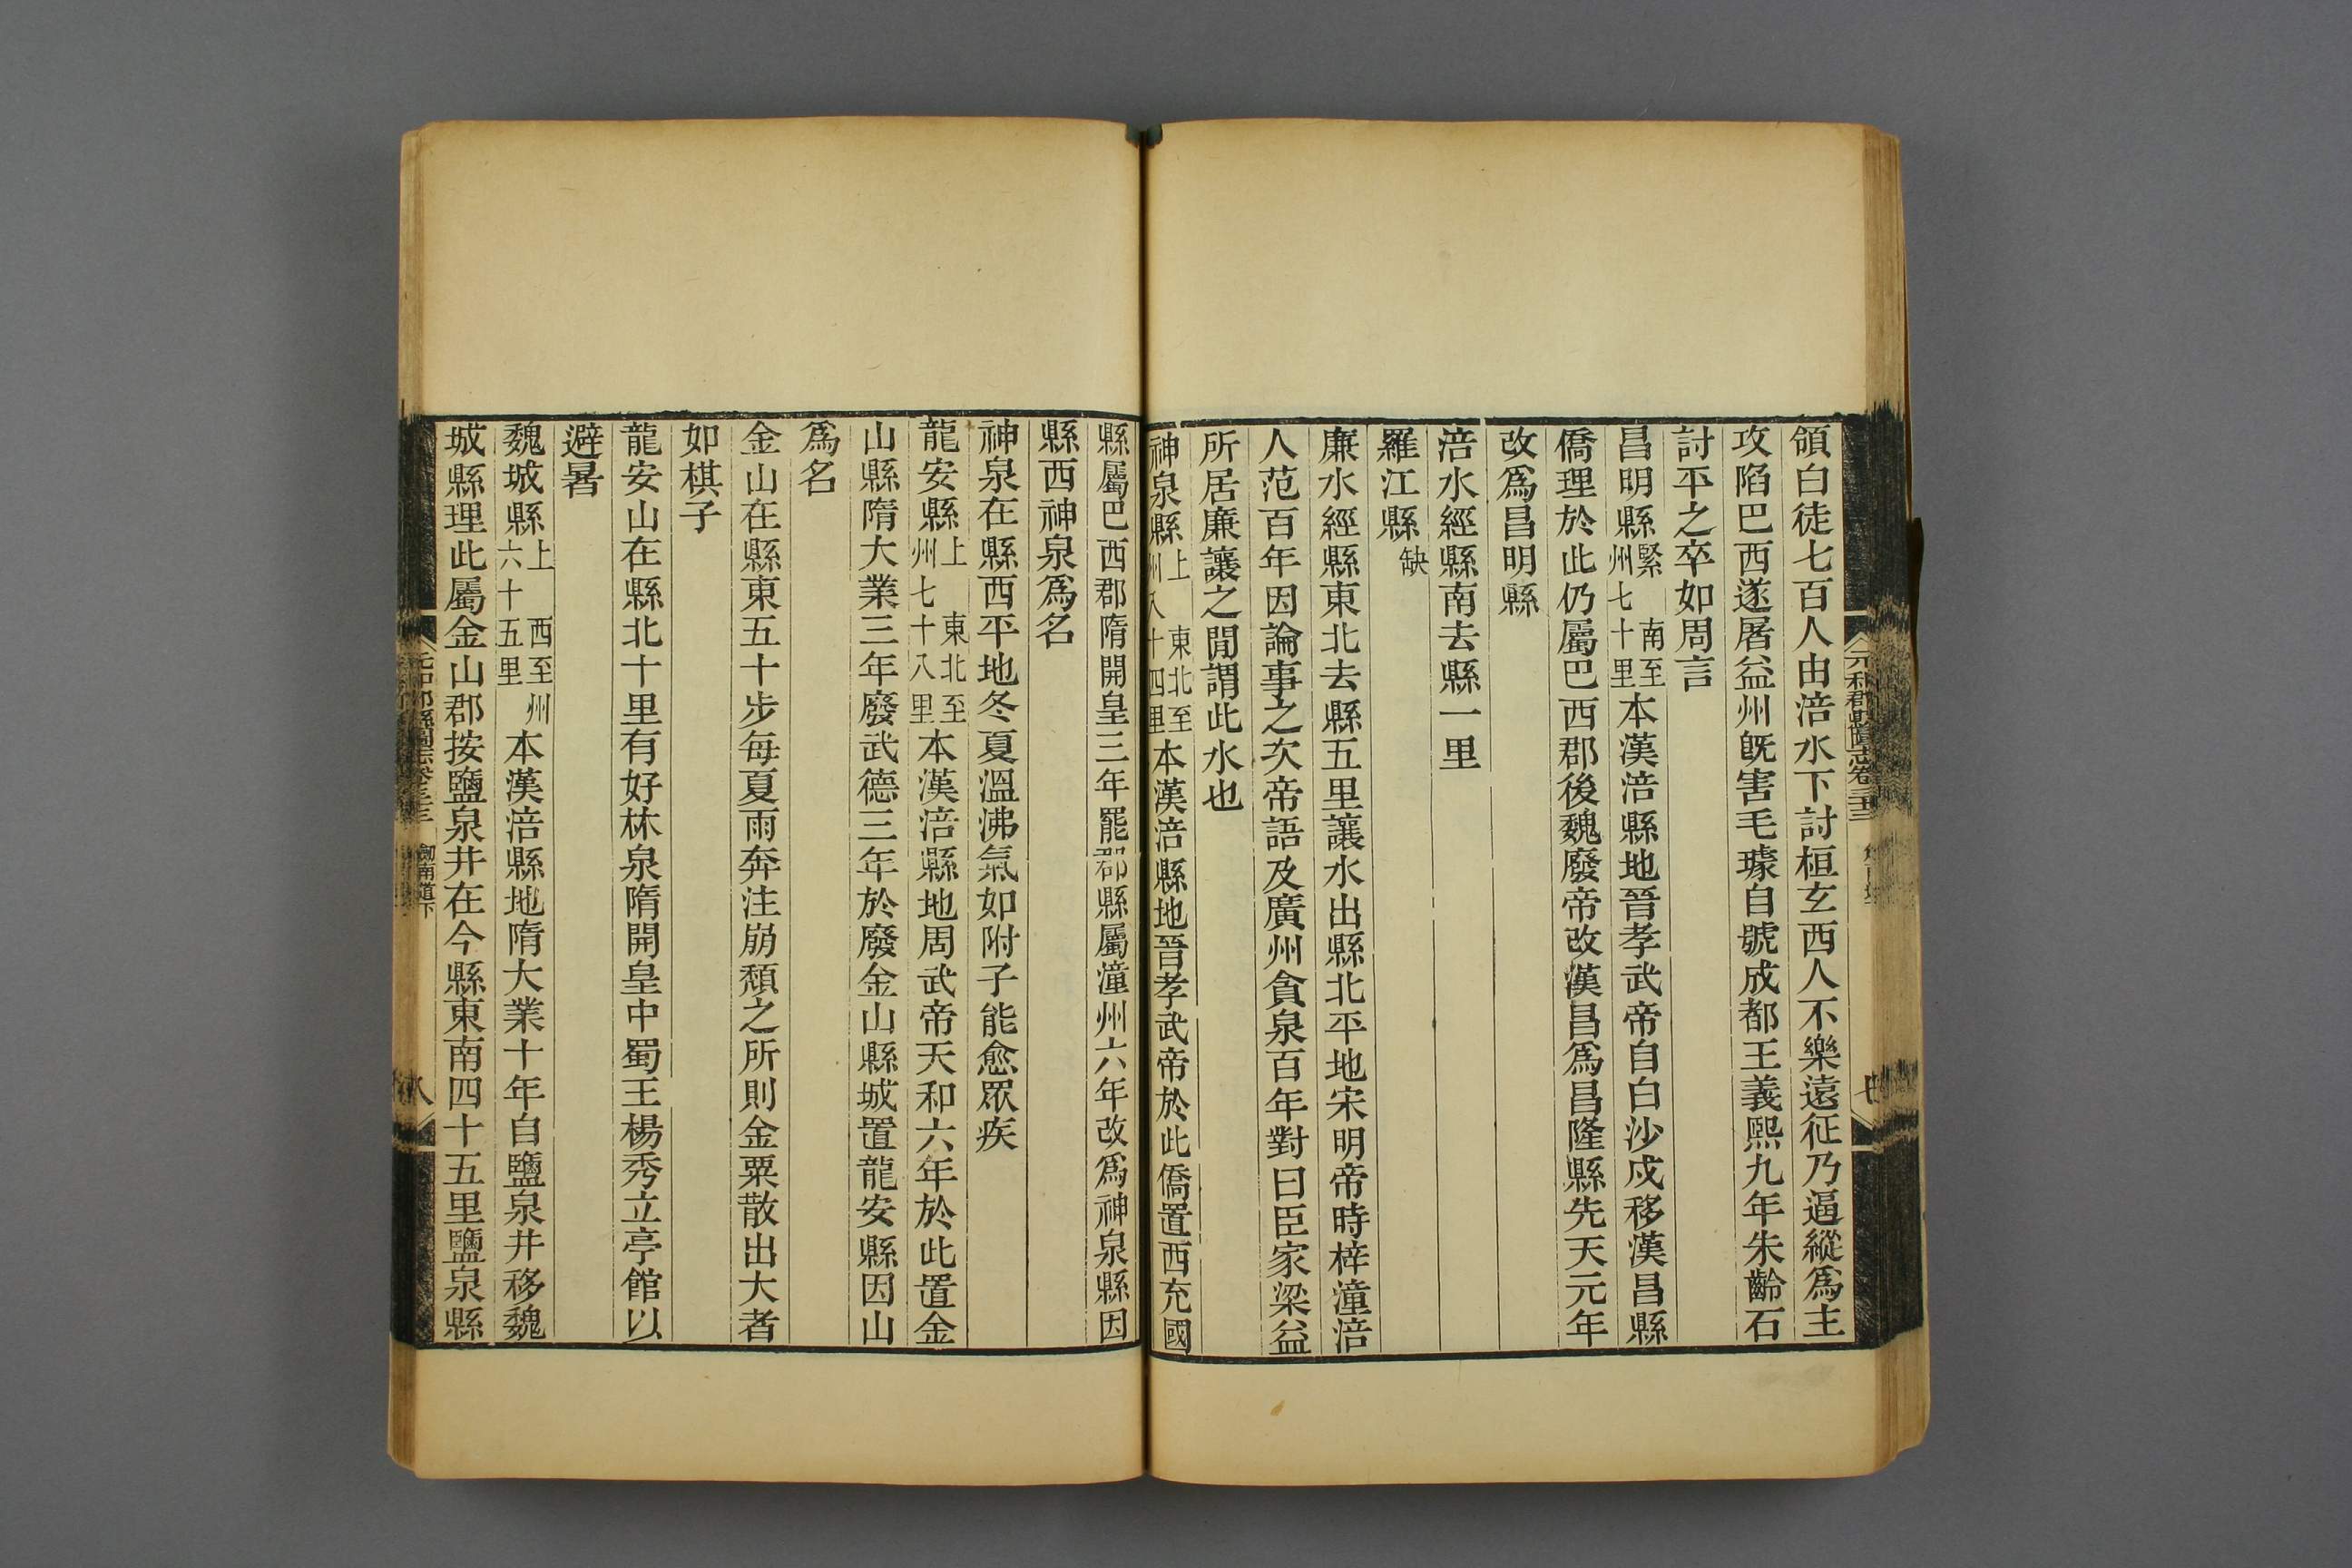 領白徒七百人由涪水下討桓玄西人不樂遠征乃逼縱爲主
攻陷巴西遂屠益州旣害毛璩自號成都王義熙九年朱齡石
討平之卒如周言
昌明縣緊 南至州七十里本漢涪縣地晉孝武帝自白沙戍移漢昌縣
僑理於此仍屬巴西郡後魏廢帝改漢昌爲昌隆縣先天元年
改爲昌明縣
涪水經縣南去縣一里
羅江縣缺
廉水經縣東北去縣五里讓水出縣北平地宋明帝時梓潼涪
人范百年因論事之次帝語及廣州貪泉百年對曰臣家梁益
所居廉讓之閒謂此水也
神泉縣上 東北至州八十四里本漢涪縣地晉孝武帝於此僑置西充國
縣屬巴西郡隋開皇三年罷郡縣屬潼州六年改爲神泉縣因
縣西神泉爲名
神泉在縣西平地冬夏溫沸氣如附子能愈眾疾
龍安縣上 東北至州七十八里本漢涪縣地周武帝天和六年於此置金
山縣隋大業三年廢武德三年於廢金山縣城置龍安縣因山
爲名
金山在縣東五十步每夏雨奔注崩頹之所則金粟散出大者
如棋子
龍安山在縣北十里有好林泉隋開皇中蜀王楊秀立亭館以
避暑
魏城縣上 西至州六十五里本漢涪縣地隋大業十年自鹽泉井移魏
城縣理此屬金山郡按鹽泉井在今縣東南四十五里鹽泉縣
元和郡縣圖志卷三十三
劍南道下
八